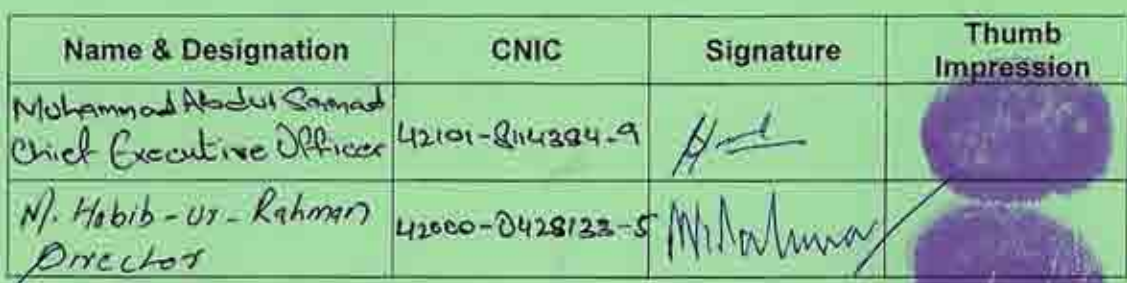 Name & Designation CNIC Signature Thumb
Impression
Muhammad Abdul Samad
Chief Executive Officer 42101-8114384-9
M. Habib-ur-Rahman 42000-0428133-5
Director